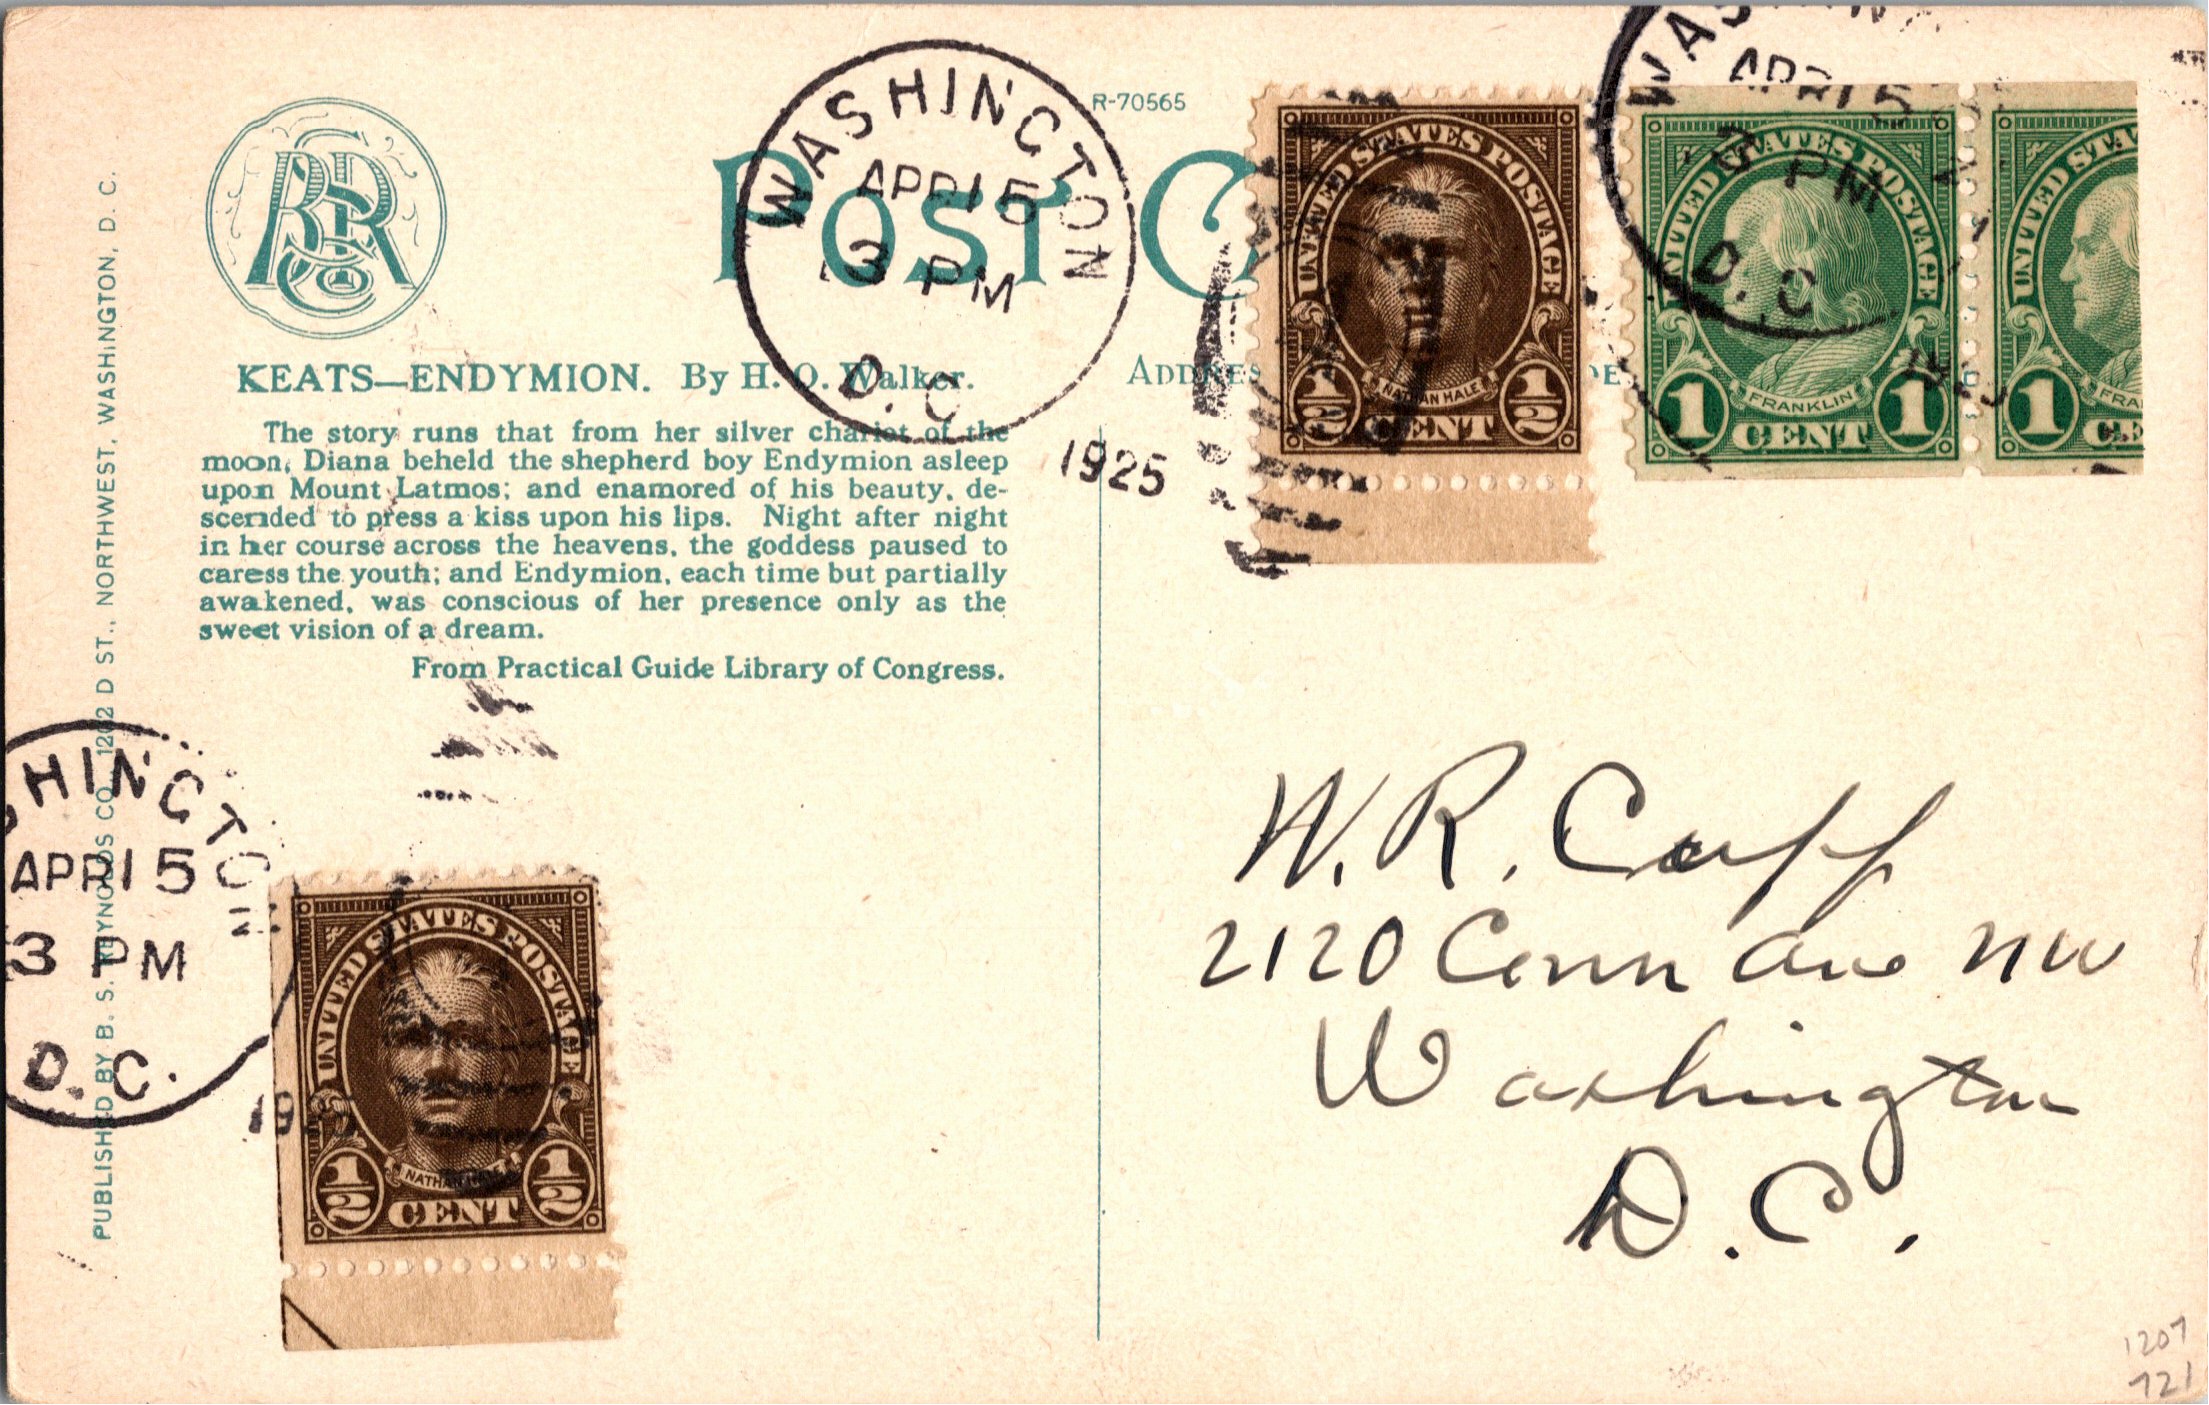 R-70565
POST C
WASHINGTON
APR 15
3 PM
D. C.
1925
BSR Co
KEATS—ENDYMION. By H. O. Walker.
The story runs that from her silver chariot of the
moon, Diana beheld the shepherd boy Endymion asleep
upon Mount Latmos; and enamored of his beauty, de-
scended to press a kiss upon his lips. Night after night
in her course across the heavens, the goddess paused to
caress the youth; and Endymion, each time but partially
awakened, was conscious of her presence only as the
sweet vision of a dream.
From Practical Guide Library of Congress.
PUBLISHED BY B. S. REYNOLDS CO., 1202 D ST., NORTHWEST, WASHINGTON, D. C.
HINGTON
APR 15
3 PM
D. C.
19
UNITED STATES POSTAGE
NATHAN HALE
1/2 CENT 1/2
ADDRES
UNITED STATES POSTAGE
NATHAN HALE
1/2 CENT 1/2
WAS
APR 15
3 PM
D. C.
UNITED STATES POSTAGE
FRANKLIN
1 CENT 1
UNITED STA
FRA
1 CE
W. R. Cupp
2120 Conn Ave NW
Washington
D. C.
1207
721